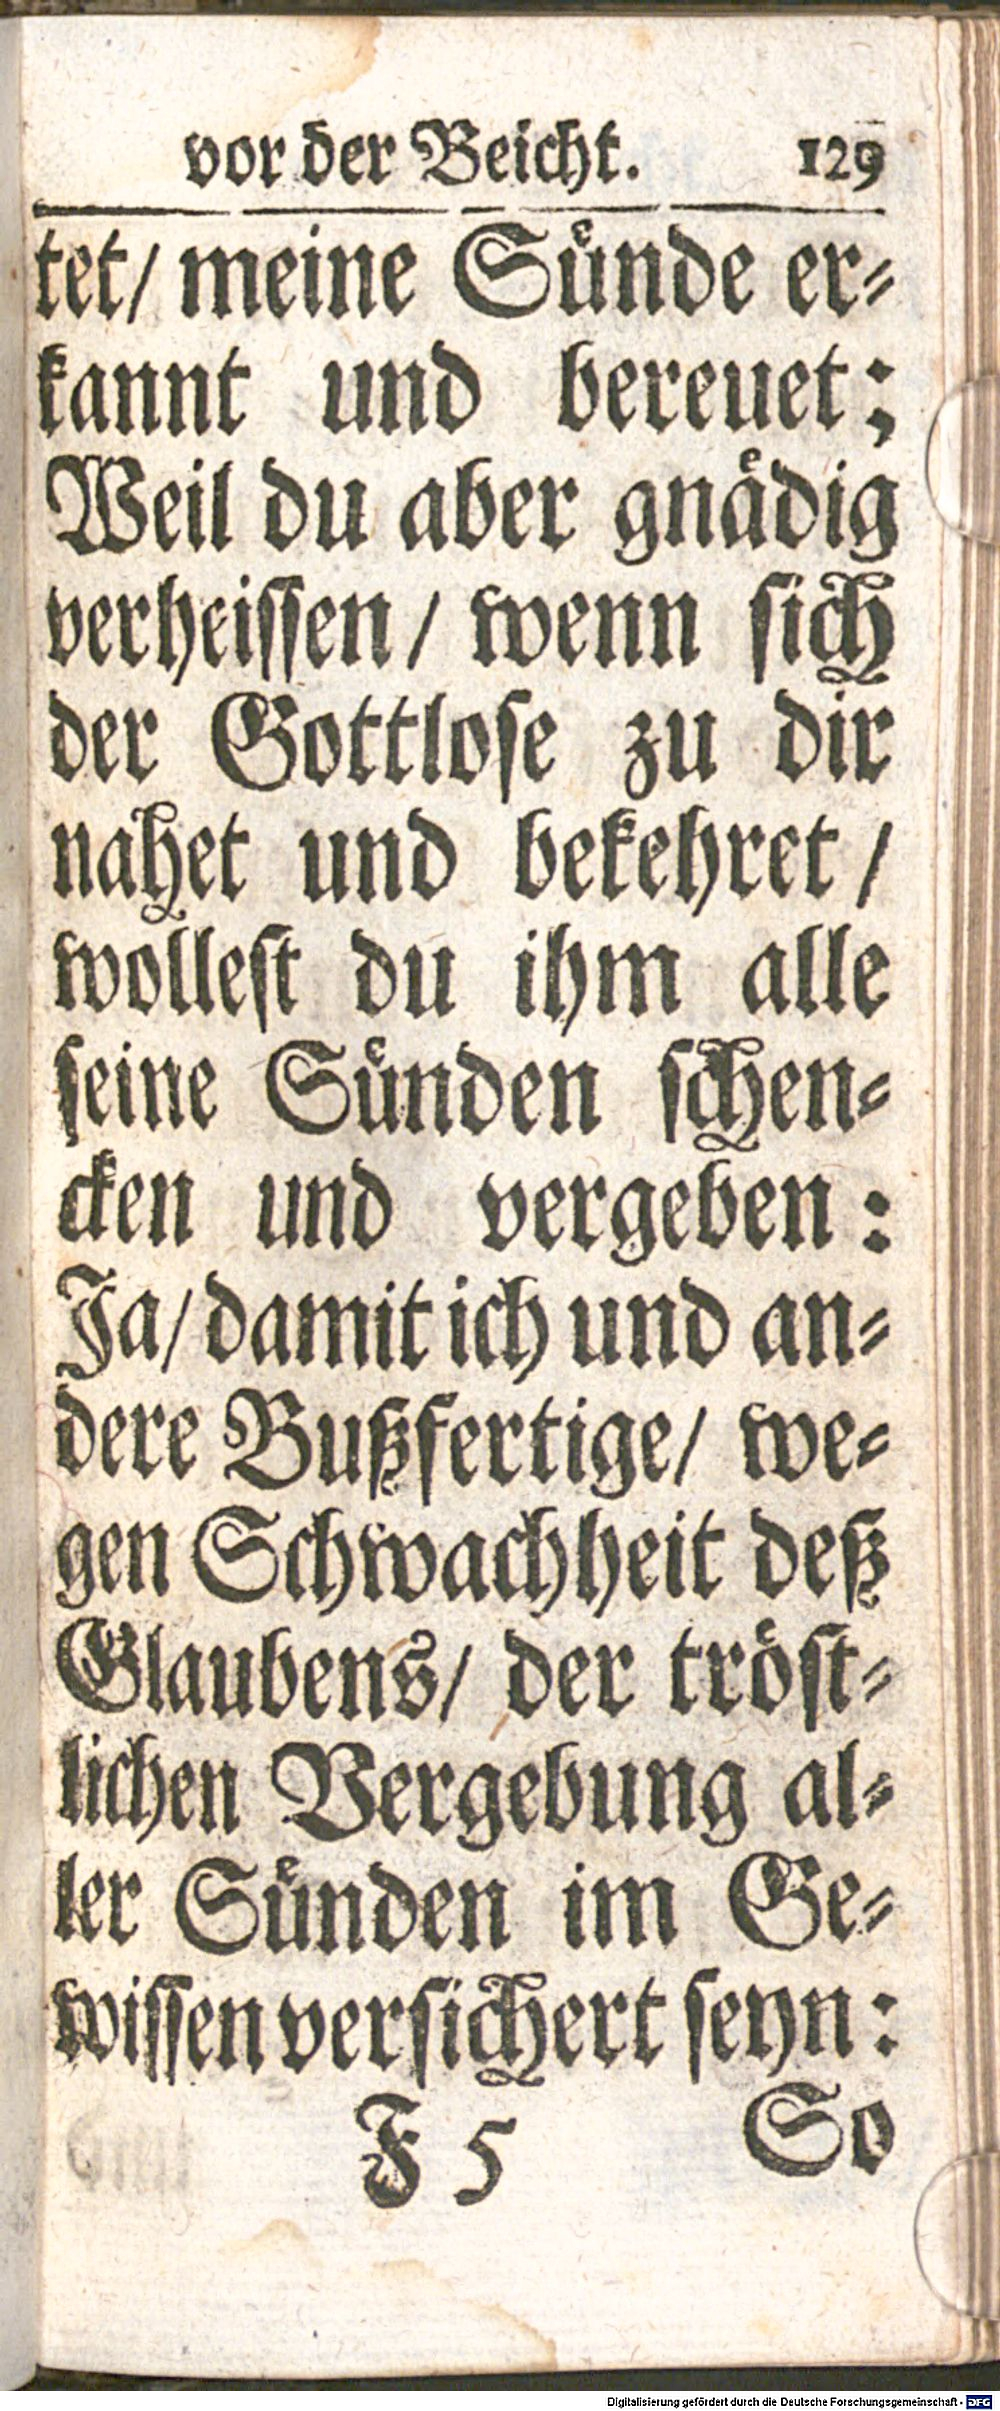 vor der Beicht. 129
tet/ meine Sünde er-
kannt und bereuet;
Weil du aber gnädig
verheissen/ wenn sich
der Gottlose zu dir
nahet und bekehret/
wollest du ihm alle
seine Sünden schen-
cken und vergeben:
Ja/ damit ich und an-
dere Bußfertige/ we-
gen Schwachheit deß
Glaubens/ der tröst-
lichen Vergebung al-
ler Sünden im Ge-
wissen versichert seyn:
F 5 So
Digitalisierung gefördert durch die Deutsche Forschungsgemeinschaft - DFG